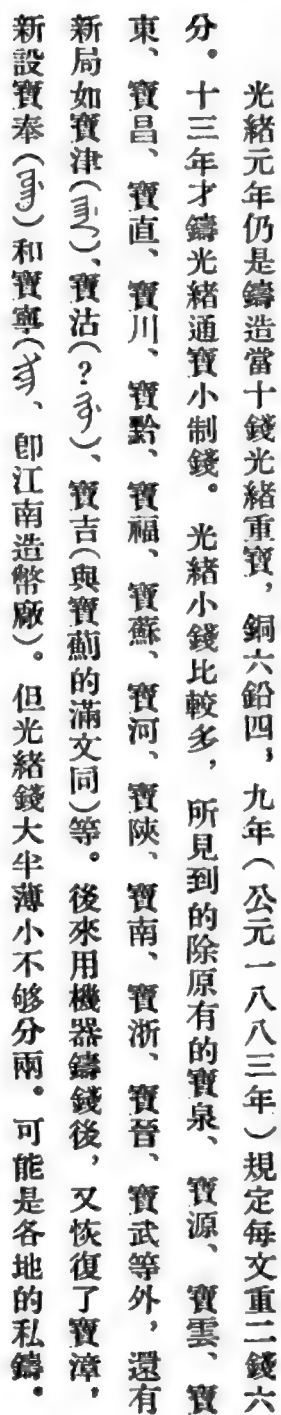 光緒元年仍是鑄造當十錢光緒重寶，銅六鉛四，九年（公元一八八三年）規定每文重二錢六
分。十三年才鑄光緒通寶小制錢。光緒小錢比較多，所見到的除原有的寶泉、寶源、寶雲、寶
東、寶昌、寶直、寶川、寶黔、寶福、寶蘇、寶河、寶陝、寶南、寶浙、寶晉、寶武等外，還有
新局如寶津（）、寶沽（？）、寶吉（與寶薊的滿文同）等。後來用機器鑄錢後，又恢復了寶漳，
新設寶奉（）和寶寧（、卽江南造幣廠）。但光緒錢大半薄小不够分兩。可能是各地的私鑄。